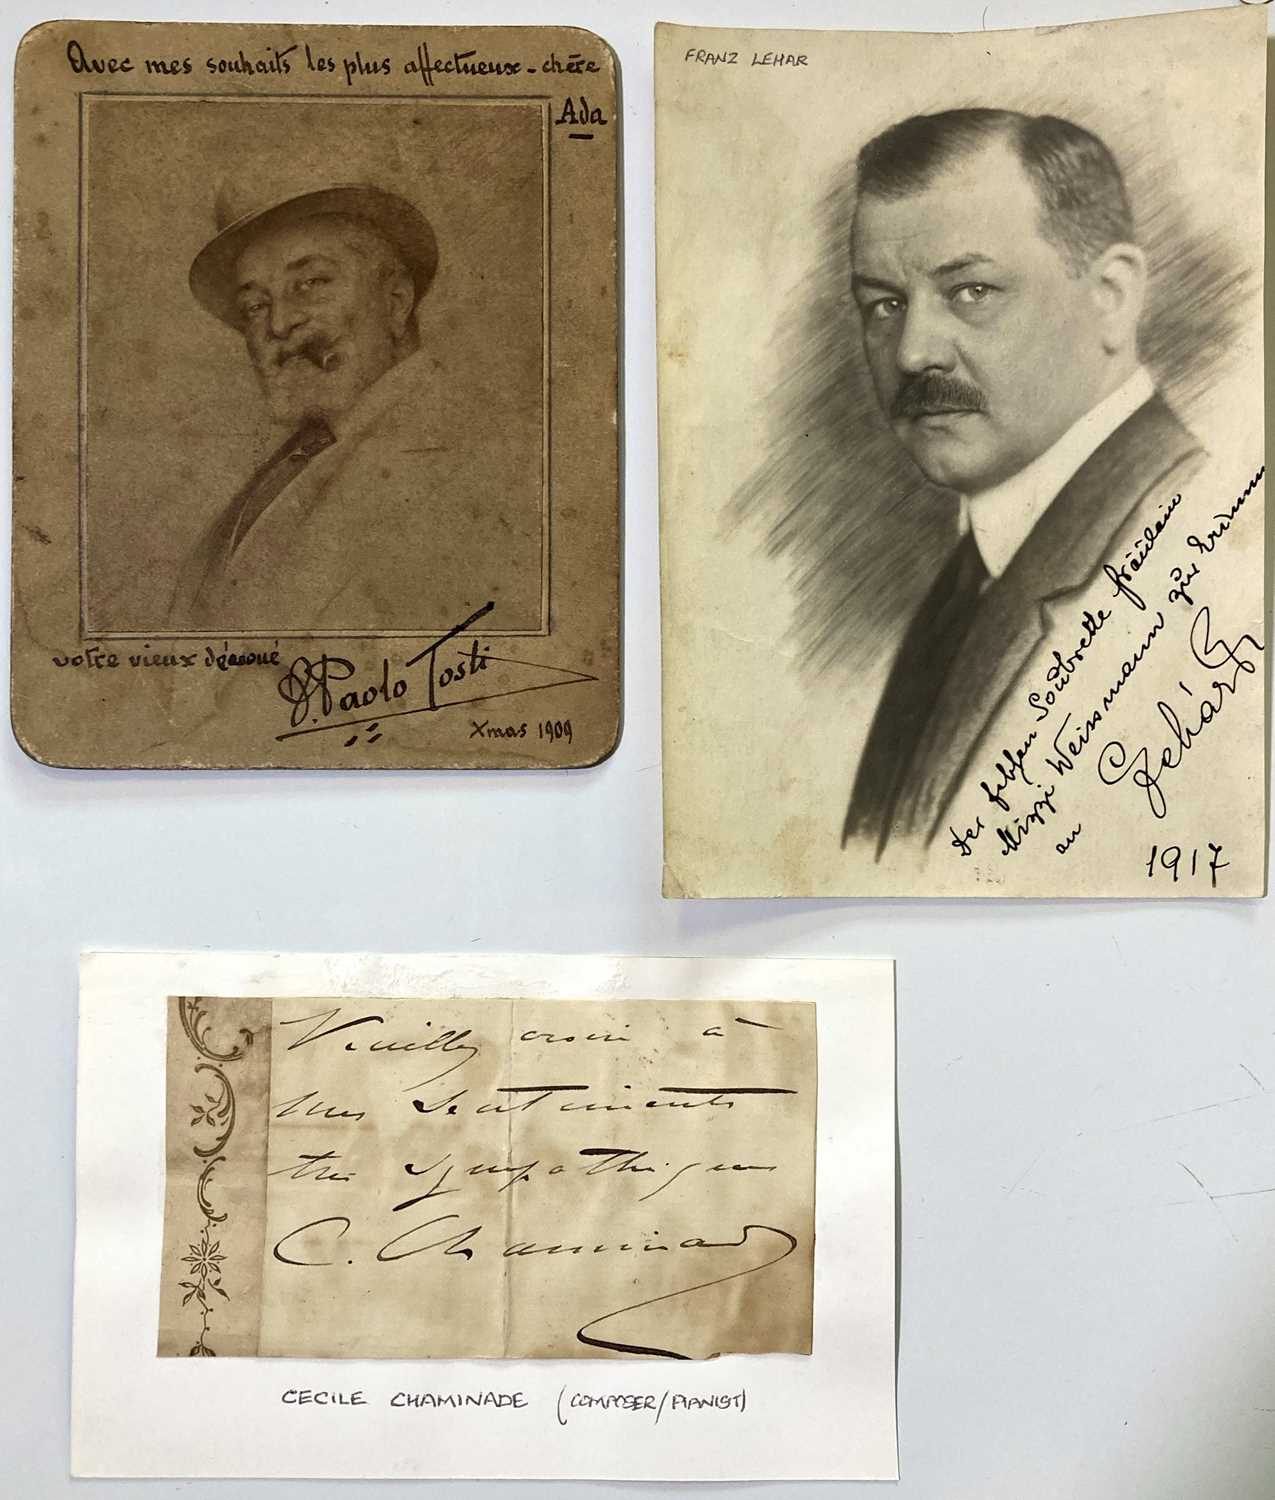 Avec mes souhaits les plus affectueux - chère
Ada
votre vieux dévoué
F. Paolo Tosti
Xmas 1909
FRANZ LEHAR
Der Soubrette Fräulein
Mizzi Weissmann zur
an
Lehár
1917
Veuillez croire à
mes sentiments
très sympathiques
C. Chaminade
CECILE CHAMINADE (COMPOSER/PIANIST)